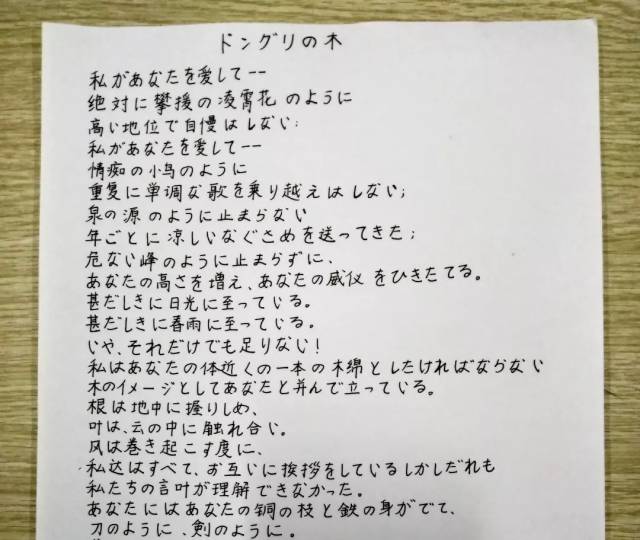 ドングリの木
私があなたを愛して——
绝対に攀援の凌霄花のように
高い地位で自慢はしない;
私があなたを愛して——
情痴の小鸟のように
重复に単调な歌を乗り越えはしない;
泉の源のように止まらない
年ごとに凉しいなぐさめを送ってきた;
危ない峰のように止まらずに、
あなたの高さを増え、あなたの威仪をひきたてる。
甚だしきに日光に至っている。
甚だしきに春雨に至っている。
いや、それだけでも足りない!
私はあなたの体近くの一本の木绵としたければならない
木のイメージとしてあなたと并んで立っている。
根は地中に握りしめ、
叶は、云の中に触れ合い。
风は巻き起こす度に、
私达はすべて、お互いに挨拶をしているしかしだれも
私たちの言叶が理解できなかった。
あなたにはあなたの铜の枝と鉄の身がでて、
刀のように、剣のように。